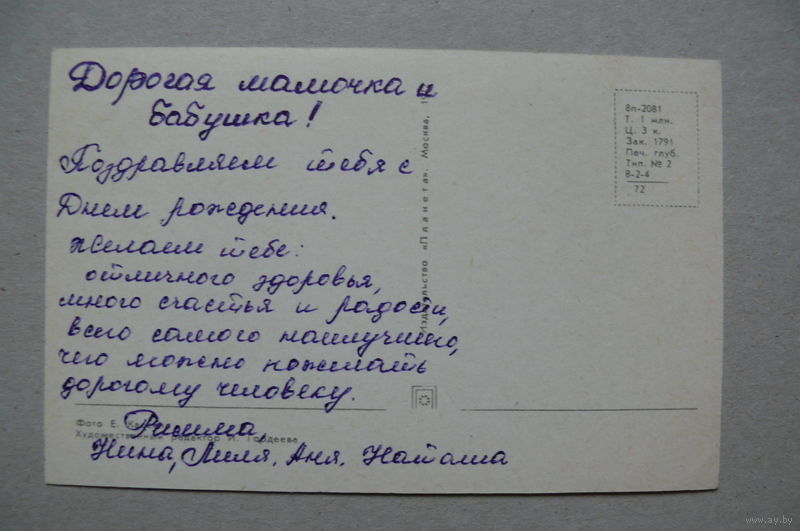 Дорогая мамочка и
бабушка!
Поздравляем тебя с
Днем рождения.
Желаем тебе:
отличного здоровья,
много счастья и радости,
всего самого наилучшего,
что можно пожелать
дорогому человеку.
Римма,
Нина, Лиля, Аня, Наташа
Издательство «Планета». Москва, 1
8п-2081
Т. 1 млн.
Ц. 3 к.
Зак. 1791
Печ. глуб.
Тип. № 2
8-2-4
72
Фото Е.
Художественный редактор И. Гордеева
www.ay.by